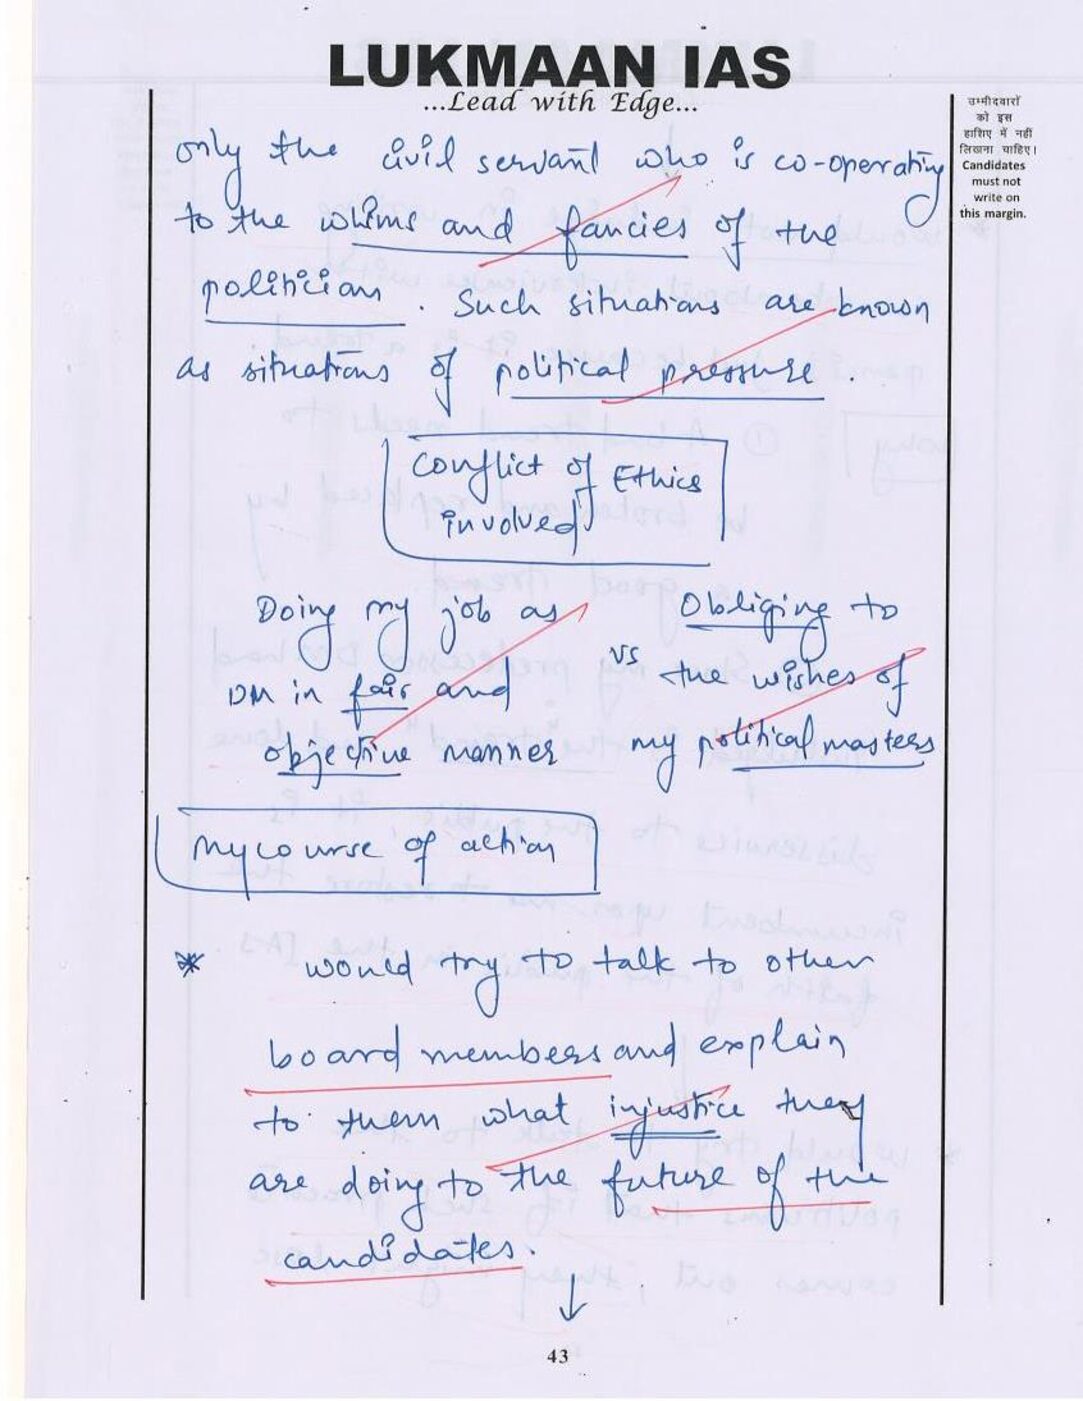 LUKMAAN IAS
...Lead with Edge...
उम्मीदवारों
को इस
हाशिए में नहीं
लिखना चाहिए।
Candidates
must not
write on
this margin.
only the civil servant who is co-operating
to the whims and fancies of the
politician. Such situations are known
as situations of political pressure.
Conflict of Ethics
involved
Doing my job as
DM in fair and
objective manner
vs
Obliging to
the wishes of
my political masters
My course of action
* would try to talk to other
board members and explain
to them what injustice they
are doing to the future of the
candidates.
↓
43